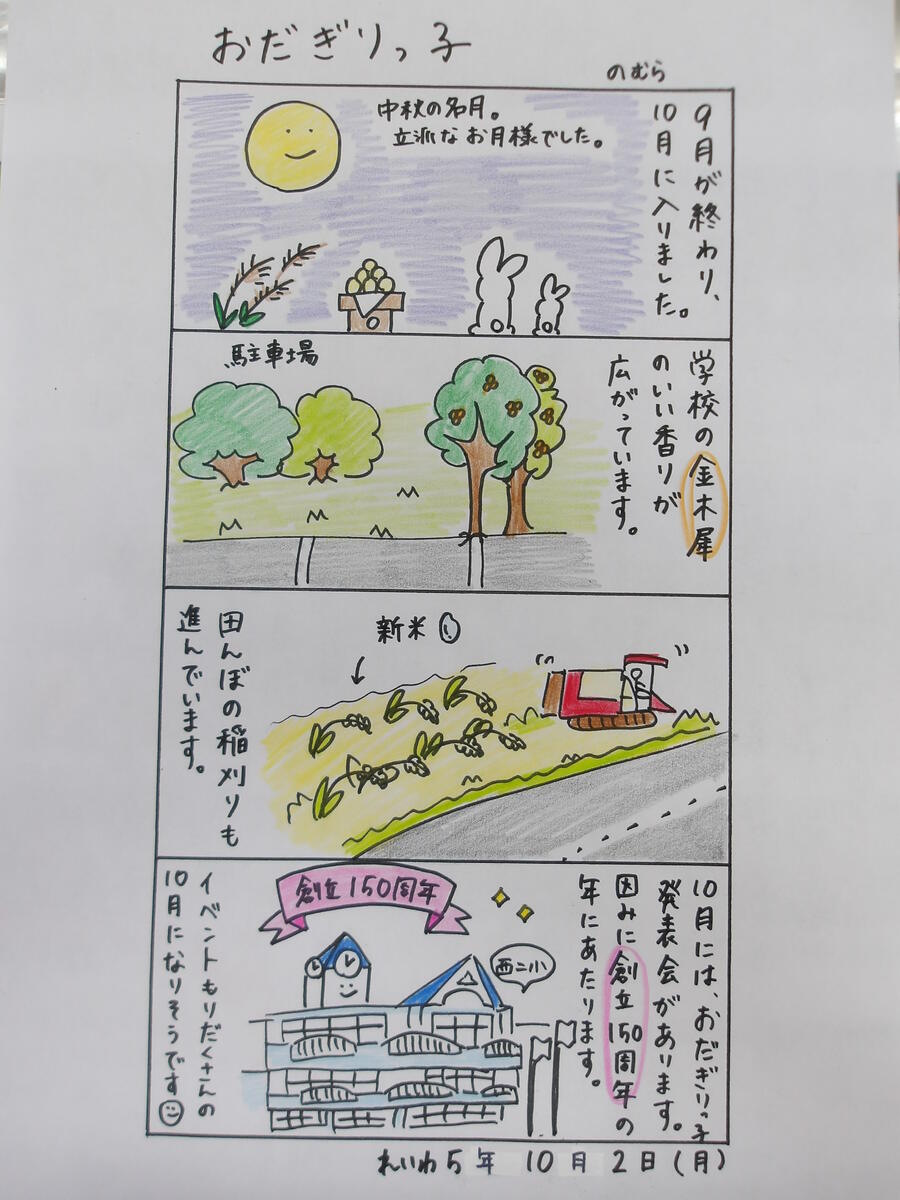 おだぎりっ子
のむら
9月が終わり、
10月に入りました。
中秋の名月。
立派なお月様でした。
学校の金木犀
のいい香りが
広がっています。
駐車場
新米
田んぼの稲刈りも
進んでいます。
10月には、おだぎりっ子
発表会があります。
因みに創立150周年の
年にあたります。
創立150周年
西二小
イベントもりだくさんの
10月になりそうです
れいわ5年 10月2日(月)